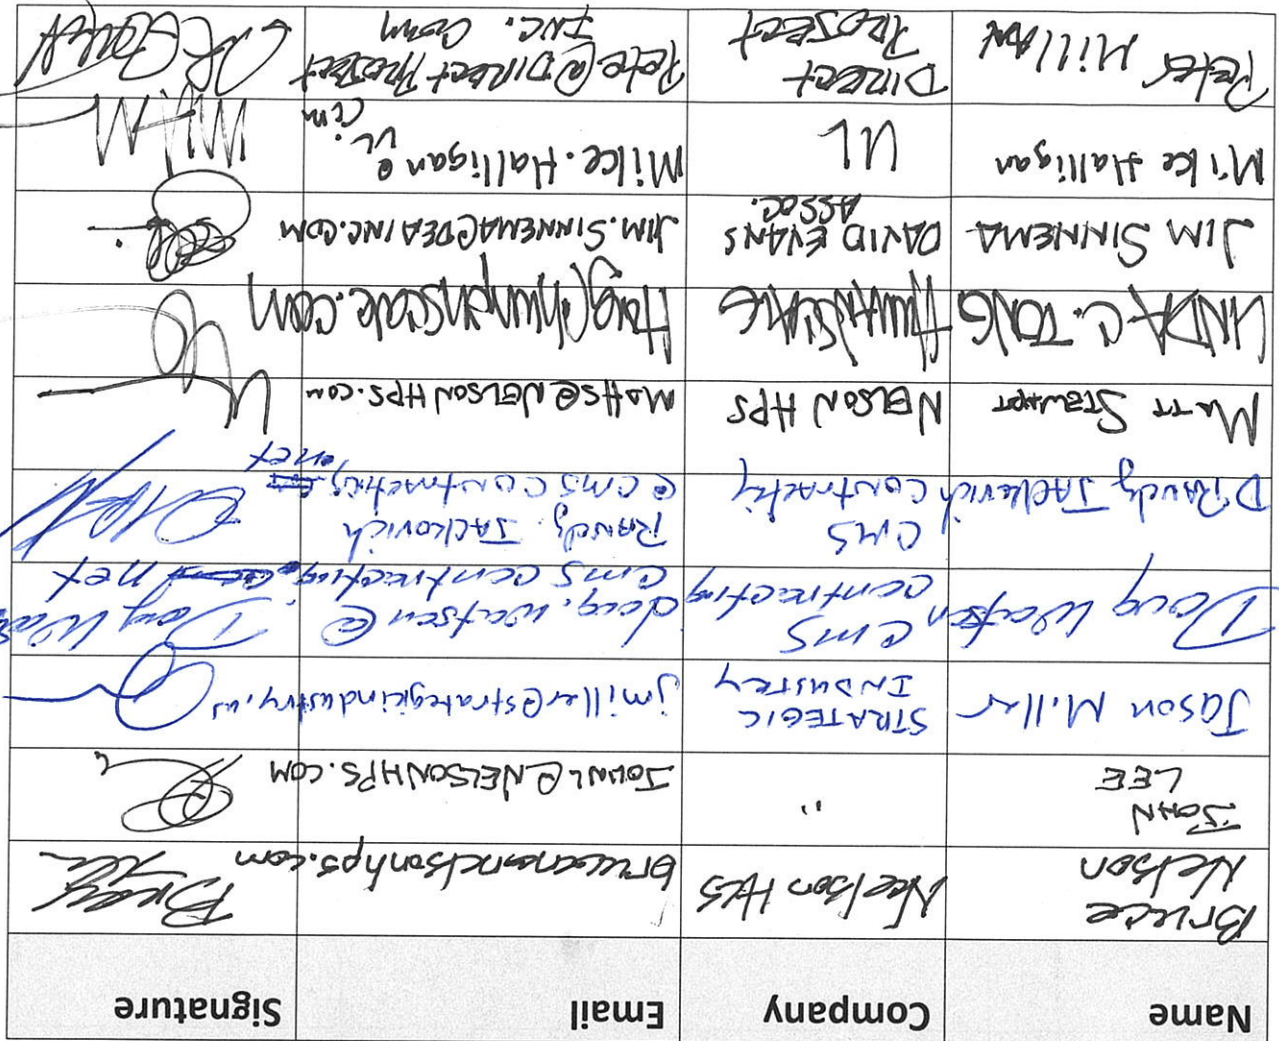 Name Company Email Signature
Bruce Nelson Nelson HPS
JOHN LEE " JOHNL@NELSONHPS.COM
Jason Miller STRATEGIC INDUSTRY jmiller@strategicindustry.us
Doug Watson CMS contracting doug.watson@cmscontracting.net Doug
D'Randy Jackovich CMS Contracting Randy.Jackovich@cmscontracting.net
MATT STEWART NELSON HPS MattS@NELSONHPS.com
LINDA C. TONG HUMANSCALE
JIM SINNEMA DAVID EVANS ASSOC. JIM.SINNEMA@DEAINC.COM
Mike Halligan UL Mike.Halligan@UL.com
Peter Millar DIRECT PROJECT Pete@DIRECTPROJECTINC.com